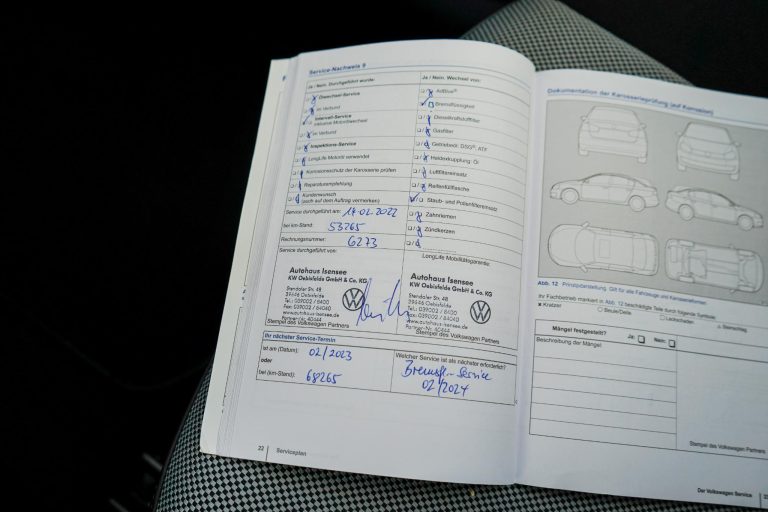 Service-Nachweis 9
Ja / Nein Durchgeführt wurde:
Ölwechsel-Service
im Verbund
Intervall-Service
inklusive Motorölwechsel
im Verbund
Inspektions-Service
LongLife Motoröl verwendet
Korrosionsschutz der Karosserie prüfen
Reparaturempfehlung
Kundenwunsch
(auch auf dem Auftrag vermerken)
Service durchgeführt am: 17.02.2022
bei km-Stand: 53265
Rechnungsnummer: 6273
Service durchgeführt von:
Autohaus Isensee
KW Oebisfelde GmbH & Co. KG
Stendaler Str. 48
39646 Oebisfelde
Tel.: 039002 / 8400
Fax: 039002 / 84040
www.autohaus-isensee.de
Partner-Nr.: 40444
Stempel des Volkswagen Partners
Ja / Nein Wechsel von:
AdBlue®
Bremsflüssigkeit
Dieselkraftstofffilter
Gasfilter
Getriebeöl: DSG®, ATF
Haldexkupplung: Öl
Luftfiltereinsatz
Reifenfüllflasche
Staub- und Pollenfiltereinsatz
Zahnriemen
Zündkerzen
LongLife Mobilitätsgarantie
Autohaus Isensee
KW Oebisfelde GmbH & Co. KG
Stendaler Str. 48
39646 Oebisfelde
Tel.: 039002 / 8400
Fax: 039002 / 84040
www.autohaus-isensee.de
Partner-Nr. 40444
Stempel des Volkswagen Partners
Ihr nächster Service-Termin
ist am (Datum): 02/2023
oder
bei (km-Stand): 68265
Welcher Service ist als nächster erforderlich?
Bremsfl.-Service
02/2024
22
Serviceplan
Dokumentation der Karosserieprüfung (auf Korrosion)
Abb. 12 Prinzipdarstellung. Gilt für alle Fahrzeuge und Karosserieformen.
Ihr Fachbetrieb markiert in Abb. 12 beschädigte Teile durch folgende Symbole:
Kratzer
Beule/Delle
Lackschaden
Steinschlag
Mängel festgestellt?
Ja:
Nein:
Beschreibung der Mängel:
Stempel des Volkswagen Partners
Der Volkswagen Service